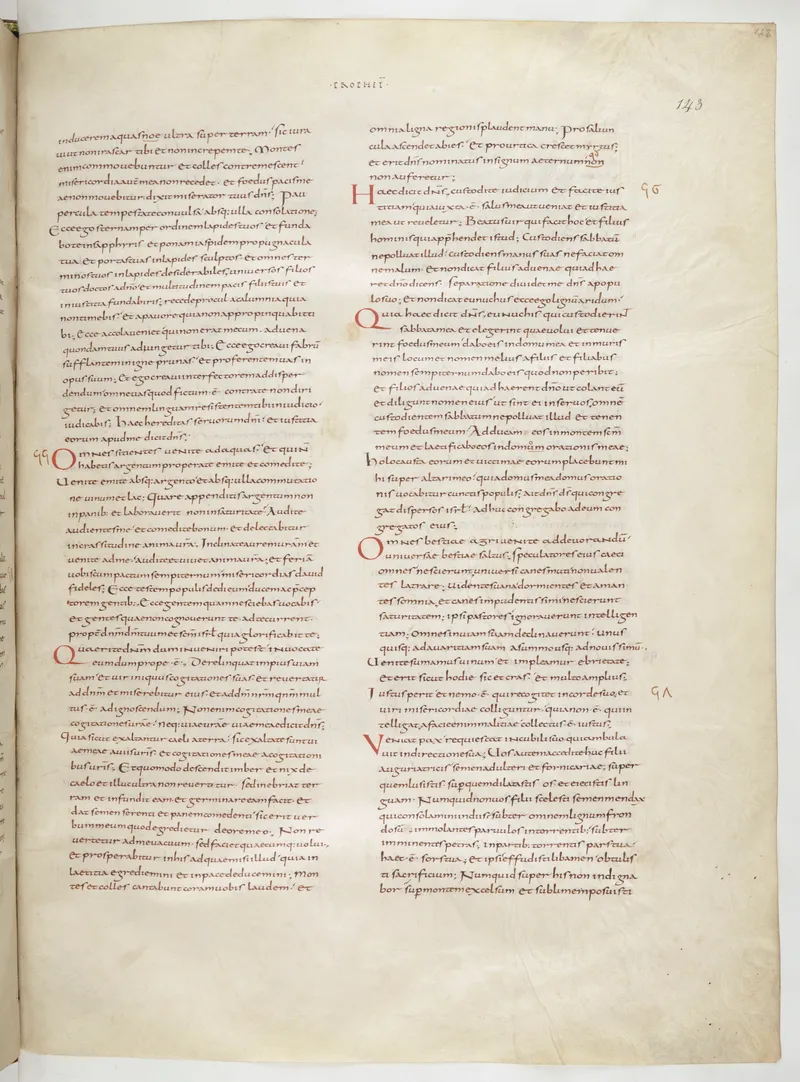 ·PROPHET̄·
143
inducerem aquas noe ultra super terram; sic iura
ui ut non irascar tibi et non increpem te, Montes
enim commouebuntur et colles contremescent;
misericordia autē mea non recedet, et foedus pacis me
ae non mouebitur dixit miserator tuus dn̄s; Pau
percula tempestate conuulsa absq; ulla consolatione;
Ecce ego sternam per ordinem lapides tuos et funda
bo te in sapphyris et ponam iaspidem propugnacula
tua et portas tuas in lapides sculptos et omnes ter
minos tuos in lapides desiderabiles, uniuersos filios
tuos doctos a dn̄o et multitudinem pacis filiis tuis et
in iustitia fundaberis; recede procul a calumnia quia
non timebis et a pauore quia non appropinquabit ti
bi; Ecce accola ueniet qui non erat mecum, aduena
quondam tuus adiungetur tibi; Ecce ego creaui fabrū
sufflantem in igne prunas et proferentem uas in
opus suum; et ego creaui interfectorem ad disper
dendum omne uas quod fictum ē contra te non diri
getur; et omnem linguam resistentem tibi in iudicio
iudicabis, Haec hereditas seruorum dn̄i et iustitia
eorum apud me dicit dn̄s;
Omnes sitientes uenite ad aquas et qui n̄
habetis argentum properate emite et comedite;
Uenite emite absq; argento et absq; ulla commutatio
ne uinum et lac; Quare appenditis argentum non
in panib; et laborem uestrum non in saturitate; Audite
audientes me et comedite bonum et delectabitur
in crassitudine anima ura, Inclinate aurem uram et
uenite ad me; Audite et uiuet anima ura; et feriā
uobiscum pactum sempiternum misericordias dauid
fideles; Ecce testem populis dedi eum ducem ac p̄cep
torem gentib; Ecce gentem quam nesciebas uocabis
et gentes quae non cognouerunt te ad te current
propter dn̄m dm̄ tuum et scm̄ isrl̄ quia glorificabit te;
Quaerite dn̄m dum inueniri potest; inuocate
eum dum prope ē; Derelinquat impius uiam
suam et uir iniquus cogitationes suas et reuertatur
ad dn̄m et miserebitur eius et ad dm̄ nr̄m qnm̄ mul
tus ē ad ignoscendum; Non enim cogitationes meae
cogitationes uestrae; neq; uiae urae uiae meae dicit dn̄s;
Quia sicut exaltantur caeli a terra; sic exaltatae sunt ui
ae meae a uiis uris, et cogitationes meae a cogitationi
bus uris; Et quomodo descendit imber et nix de
caelo et illuc ultra non reuertitur sed inebriat ter
ram et infundit eam et germinare eam facit et
dat semen serenti et panem comedenti; sic erit uer
bum meum quod egredietur de ore meo; Non re
uertetur ad me uacuum sed faciet quaecumq; uolui,
et prosperabitur in his ad quae misi illud; quia in
laetitia egrediemini et in pace deducemini; Mon
tes et colles cantabunt coram uobis laudem; et
omnia ligna regionis plaudent manu; Pro saliun
cula ascendet abies; et pro urtica crescet myrtus;
et erit dn̄s nominatus in signum aeternum non
non auferetur;
Haec dicit dn̄s, custodite iudicium et facite ius
titiam quia iuxta ē salus mea ut ueniat et iustitia
mea ut reueletur; Beatus uir qui facit hoc et filius
hominis qui app̄hendet istud; Custodiens sabbatū
ne polluat illud; custodiens manus suas ne faciat om
ne malum; et non dicat filius aduenae qui adhae
ret dn̄o dicens separatione diuidet me dn̄s a popu
lo suo; et non dicat eunuchus ecce ego lignū aridum;
Quia haec dicit dn̄s, eunuchis qui custodierīt
sabbata mea et elegerint quae uolui et tenue
rint foedus meum dabo eis in domu mea et in muris
meis locum et nomen melius a filiis et filiabus
nomen sempiternum dabo eis quod non peribit;
et filios aduenae qui adhaerent dn̄o ut colant eū
et diligant nomen eius ut sint ei in seruos; omnē
custodientem sabbatum ne polluat illud et tenen
tem foedus meum; Adducam eos in montem scm̄
meum et laetificabo eos in domum orationis meae;
holocausta eorum et uictimae eorum placebunt mi
hi super altari meo; quia domus mea domus oratio
nis uocabitur cunctis populis; ait dn̄s ds̄ qui congre
gat dispersos isrl̄; adhuc congregabo ad eum con
gregatos eius,
Omnes bestiae agri uenite ad deuorandū
uniuersae bestiae saltus, speculatores eius caeci
omnes nescierunt, uniuersi canes muti non ualen
tes latrare; uidentes uana dormientes et aman
tes somnia, et canes impudentissimi nescierunt
saturitatem; ipsi pastores ignorauerunt intellegen
tiam; Omnes in uiam suam declinauerunt; unus
quisq; ad auaritiam suam a summo usq; ad nouissimū;
Uenite sumamus uinum et impleamur ebrietate;
et erit sicut hodie sic et cras et multo amplius;
Iustus perit et nemo ē qui recogitet in corde suo, et
uiri misericordiae colliguntur quia non ē qui in
tellegat, a facie enim malitiae collectus ē iustus;
Veniat pax requiescat in cubili suo qui ambula
uit in directione sua; Uos autem accedite huc filii
auguriatricis semen adulteri et fornicariae; super
quem lusistis super quem dilatastis os et eiecistis lin
guam; Numquid non uos filii scelesti semen mendax
qui consolamini in diis subter omne lignum fron
dosū; immolantes paruulos in torrentib; subter
imminentes petras, In partib; torrentis pars tua
haec ē sors tua; et ipsis effudisti libamen obtulis
ti sacrificium; Numquid super his non indigna
bor; sup montem excelsum et sublimem posuisti